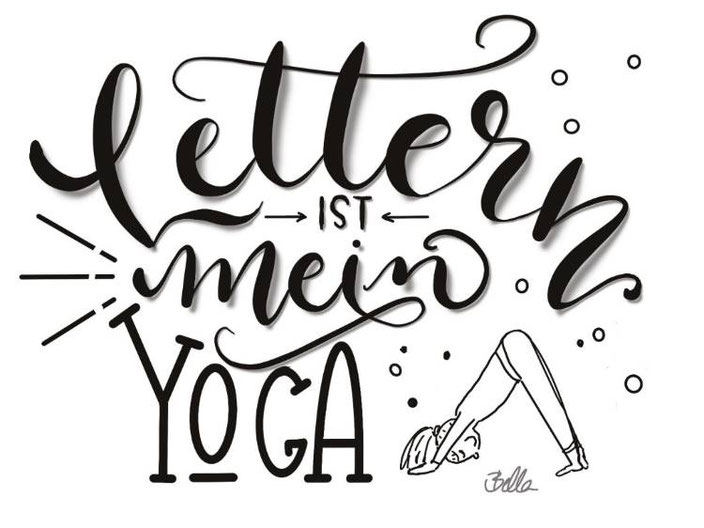 lettern
IST
mein
YOGA
Bella